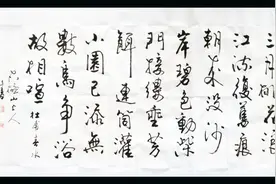 三月桃花浪
江流復舊痕
朝來沒沙
岸碧色動柴
門接縷垂芳
餌連筒灌
小園已添無
數鳥爭浴
故相喧 杜甫春水
山上人